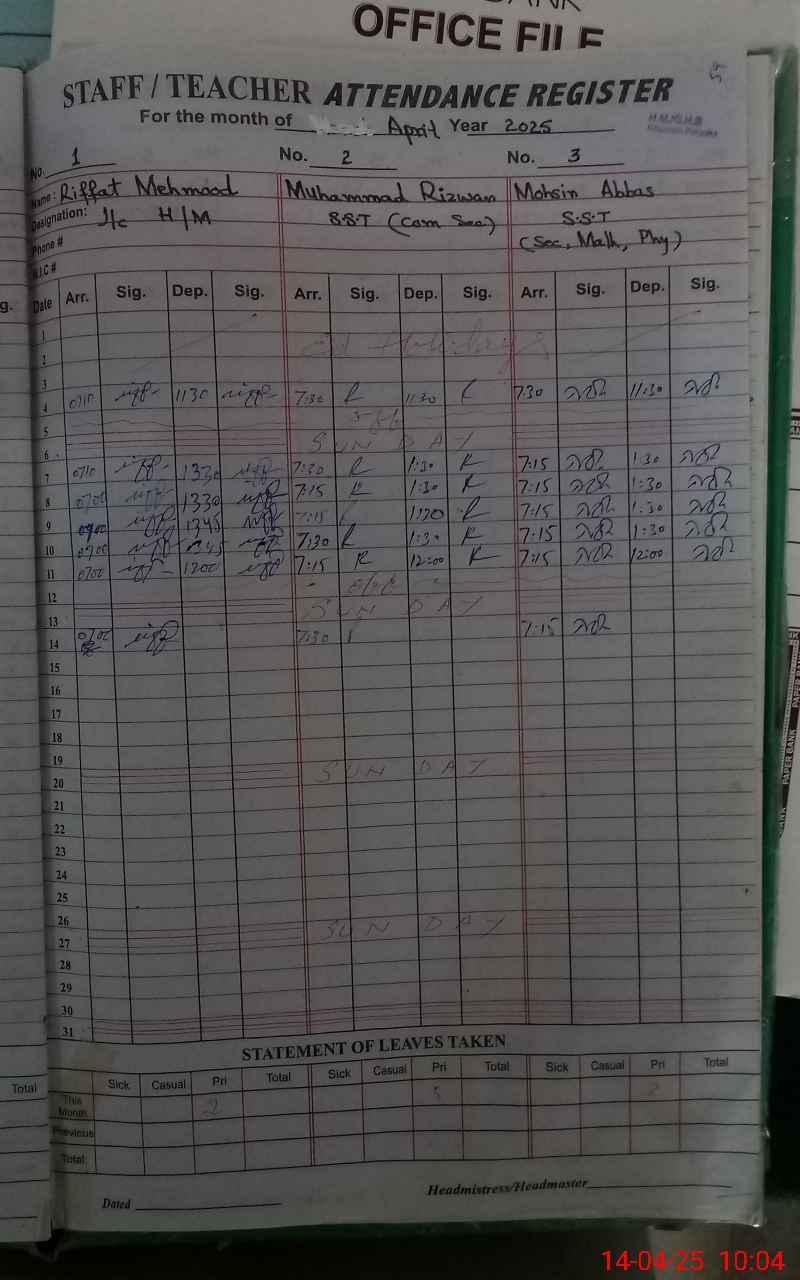 OFFICE FILE
STAFF / TEACHER ATTENDANCE REGISTER
For the month of April Year 2025
No. 1 No. 2 No. 3
Name: Riffat Mehmood Muhammad Rizwan Mohsin Abbas
Designation: I/c H/M S.S.T (Com Sec.) S.S.T
Phone # (Sec, Math, Phy)
N.I.C #
Date Arr. Sig. Dep. Sig. Arr. Sig. Dep. Sig. Arr. Sig. Dep. Sig.
1
2
3
4 0710 1130 7:30 R 11:30 7:30 11:30
5
6 SUN DAY
7 0710 1330 7:30 R 1:30 R 7:15 1:30
8 0700 1330 7:15 R 1:30 R 7:15 1:30
9 0700 1345 7:15 1:30 R 7:15 1:30
10 0700 1345 7:30 R 1:30 R 7:15 1:30
11 0700 1200 7:15 R 12:00 R 7:15 12:00
12
13 SUN DAY
14 0700 7:30 7:15
15
16
17
18
19
20 SUN DAY
21
22
23
24
25
26
27 SUN DAY
28
29
30
31
STATEMENT OF LEAVES TAKEN
Total Sick Casual Pri Total Sick Casual Pri Total Sick Casual Pri Total
This Month 2
Previous
Total:
Dated Headmistress/Headmaster
PAPER BANK
14-04-25 10:04